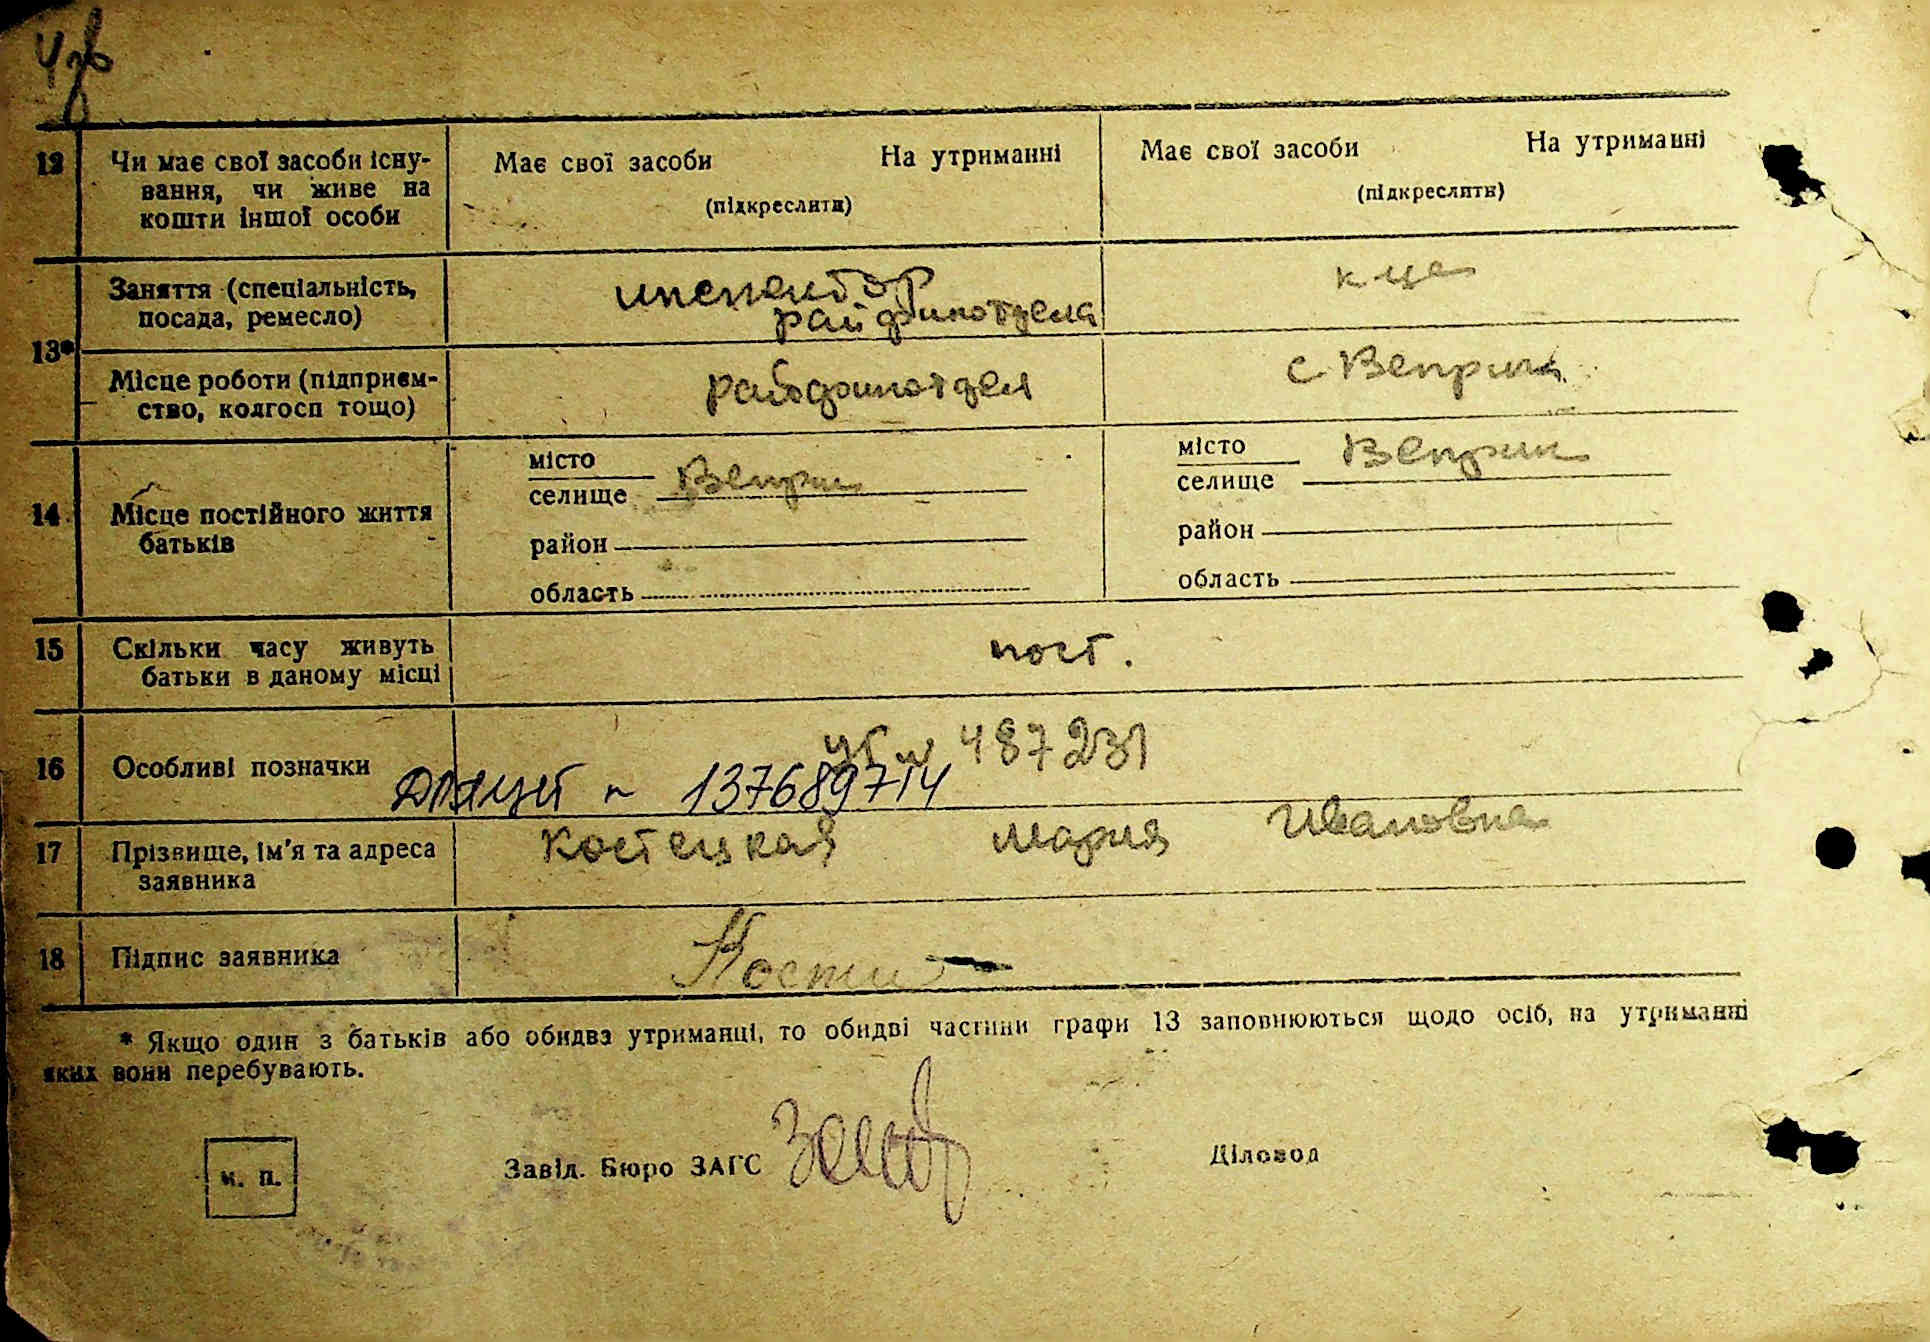 12 Чи має свої засоби існу- Має свої засоби На утриманні Має свої засоби На утриманні
вання, чи живе на (підкреслити) (підкреслити)
кошти іншої особи
13* Заняття (спеціальність, инспектор
посада, ремесло) райфинотдела
Місце роботи (підприєм- райфинотдел с Веприк
ство, колгосп тощо)
14 Місце постійного життя
батьків
місто
селище Веприк
район
область
місто
селище Веприк
район
область
15 Скільки часу живуть пост.
батьки в даному місці
16 Особливі позначки 487231
№ 137689714
17 Прізвище, ім'я та адреса Костецкая Мария Ивановна
заявника
18 Підпис заявника
* Якщо один з батьків або обидва утриманці, то обидві частини графи 13 заповнюються щодо осіб, на утриманні
яких вони перебувають.
м. п. Завід. Бюро ЗАГС Діловод